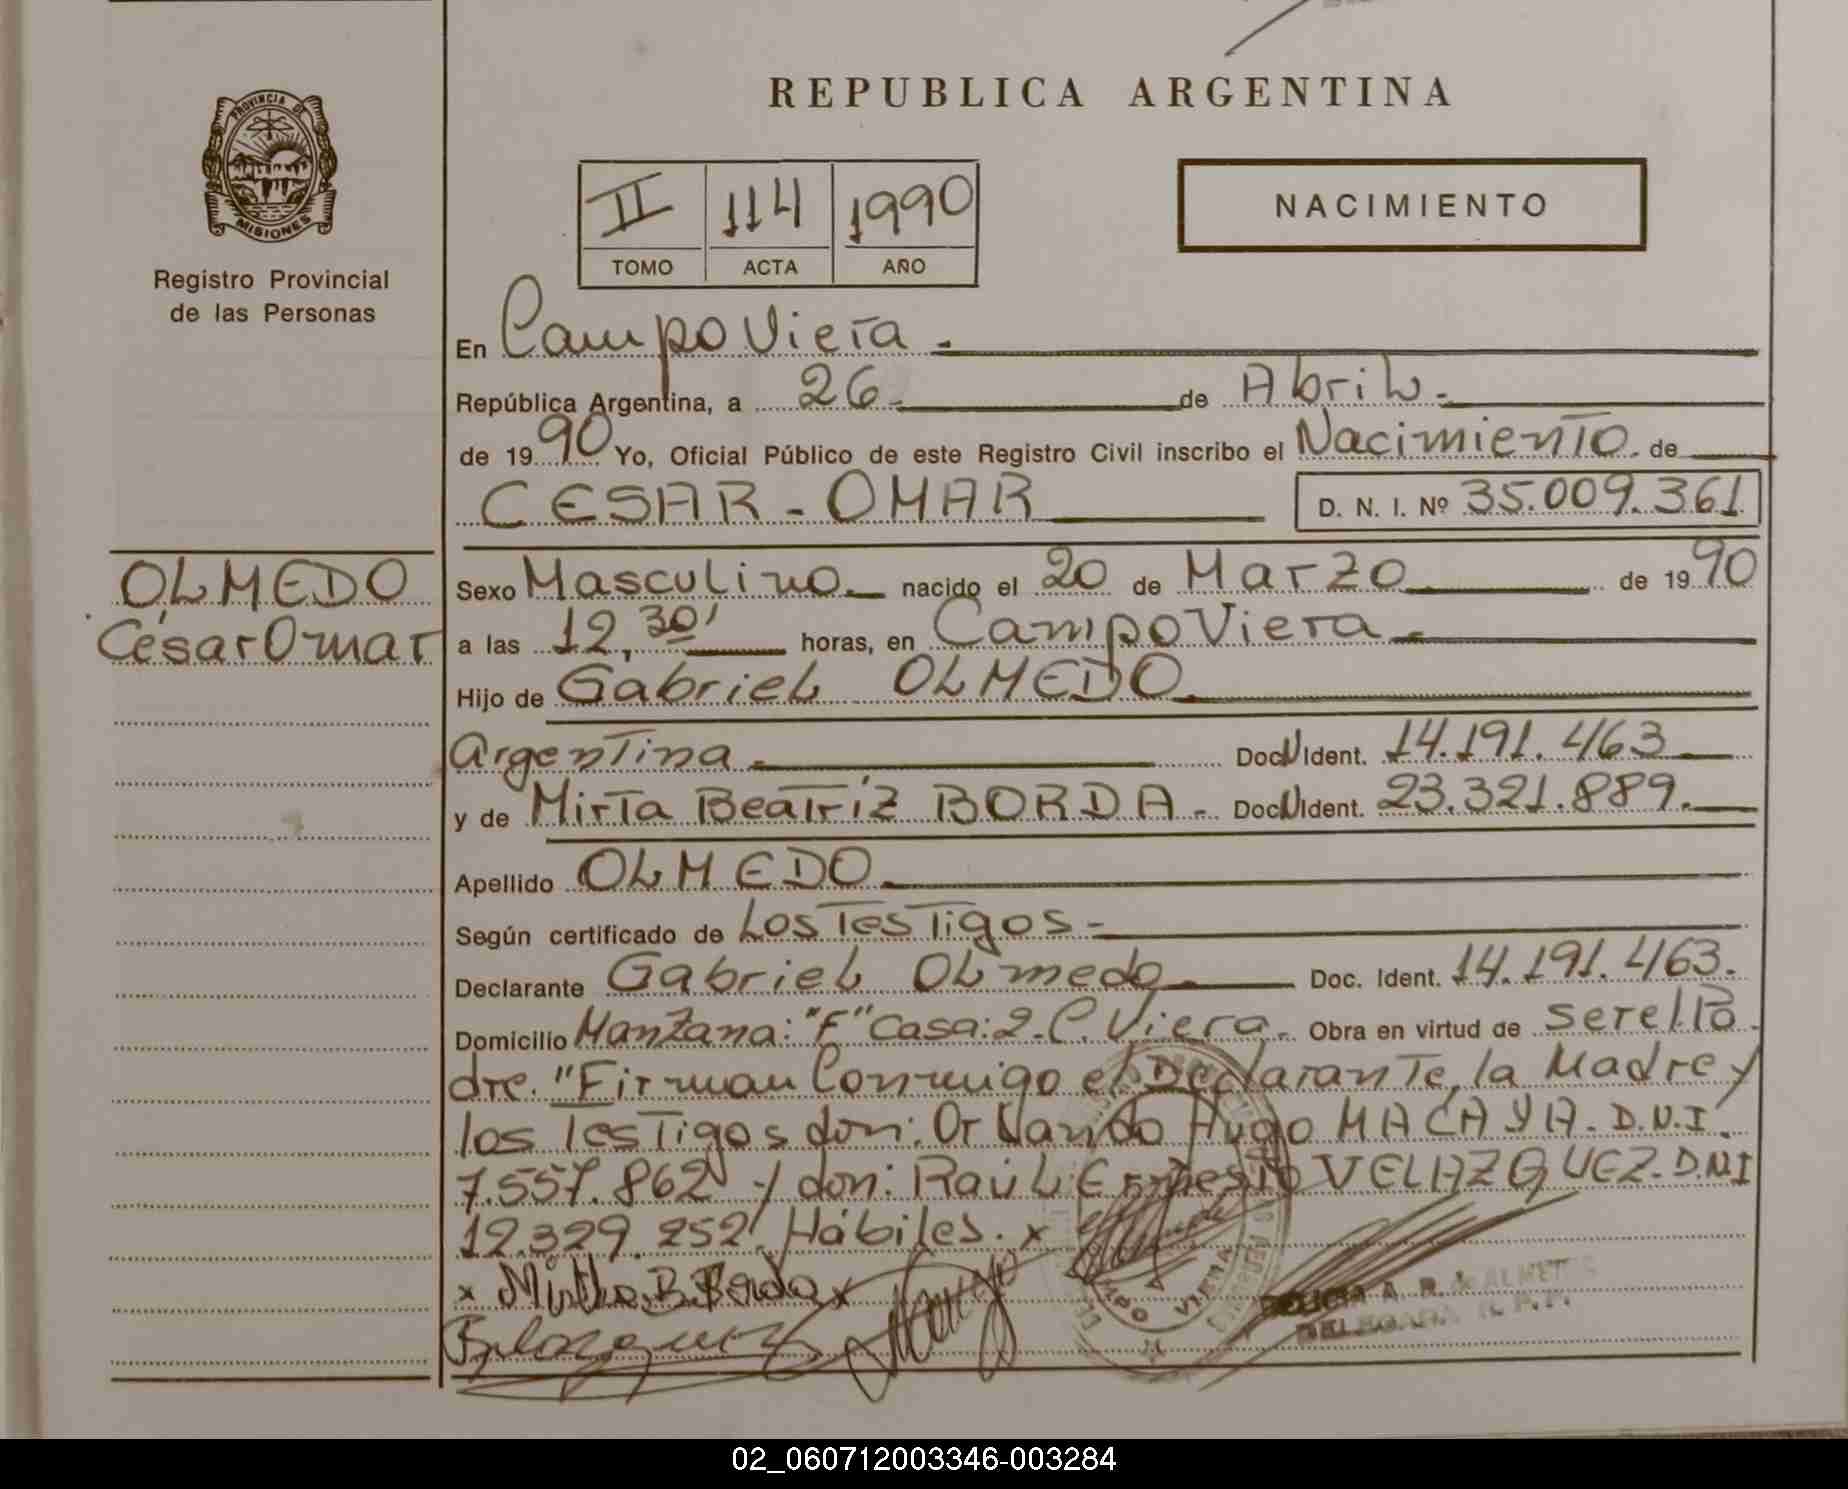 REPUBLICA ARGENTINA
PROVINCIA DE
MISIONES
Registro Provincial
de las Personas
II 114 1990
TOMO ACTA AÑO
NACIMIENTO
En Campo Viera.
República Argentina, a 26 de Abril.
de 1990 Yo, Oficial Público de este Registro Civil inscribo el Nacimiento de
CESAR - OMAR D. N. I. Nº 35.009.361
OLMEDO
César Omar
Sexo Masculino nacido el 20 de Marzo de 1990
a las 12,30' horas, en Campo Viera
Hijo de Gabriel OLMEDO
Argentina Doc. Ident. 14.191.463
y de Mirta Beatríz BORDA - Doc. Ident. 23.321.889.
Apellido OLMEDO
Según certificado de Los Testigos -
Declarante Gabriel Olmedo Doc. Ident. 14.191.463.
Domicilio Manzana: "F" Casa: 2. C. Viera. Obra en virtud de ser el Pa
dre. "Firman Conmigo el Declarante, la Madre y
los Testigos don: Orlando Hugo MACAYA. D.N.I.
7.557.862 y don: Raúl Ernesto VELAZQUEZ. D.N.I
12.329.252. Hábiles. x
x Mirtha B. Borda x
CAMPO VIERA
02_060712003346-003284